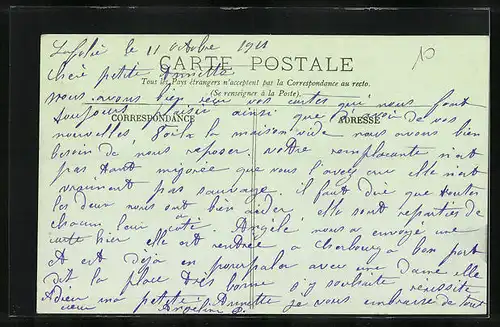 le 11 octobre 1911
10
CARTE POSTALE
Cheré petite Annette
Tous les Pays étrangers n'acceptent pas la Correspondance au recto.
(Se renseigner à la Poste).
nous avons bien reçu vos cartes qui nous font
toujours plaisir ainsi que de vos
CORRESPONDANCE
ADRESSE
nouvelles. Voila la maison vide nous avons bien
besoin de nous reposer. notre remplacante n'est
pas que vous l'avez vu elle n'est
vraiment pas sauvage. il faut dire que toutes
les deux nous ont bien aider. elle sont reparties de
chacun leur coté. Angèle nous a envoyé une
carte hier elle est rentrée a Cherbourg a bon port
et est déja en pourparler avec une Dame elle
dit la place très bonne s'y souhaite réussite
Adieu ma petite Annette je vous embrasse de tout
coeur Angeline